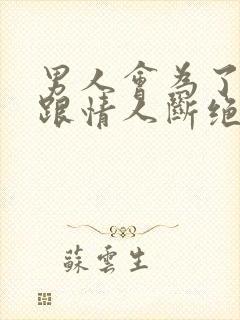 男人會為了
跟情人斷絕
蘇雲生